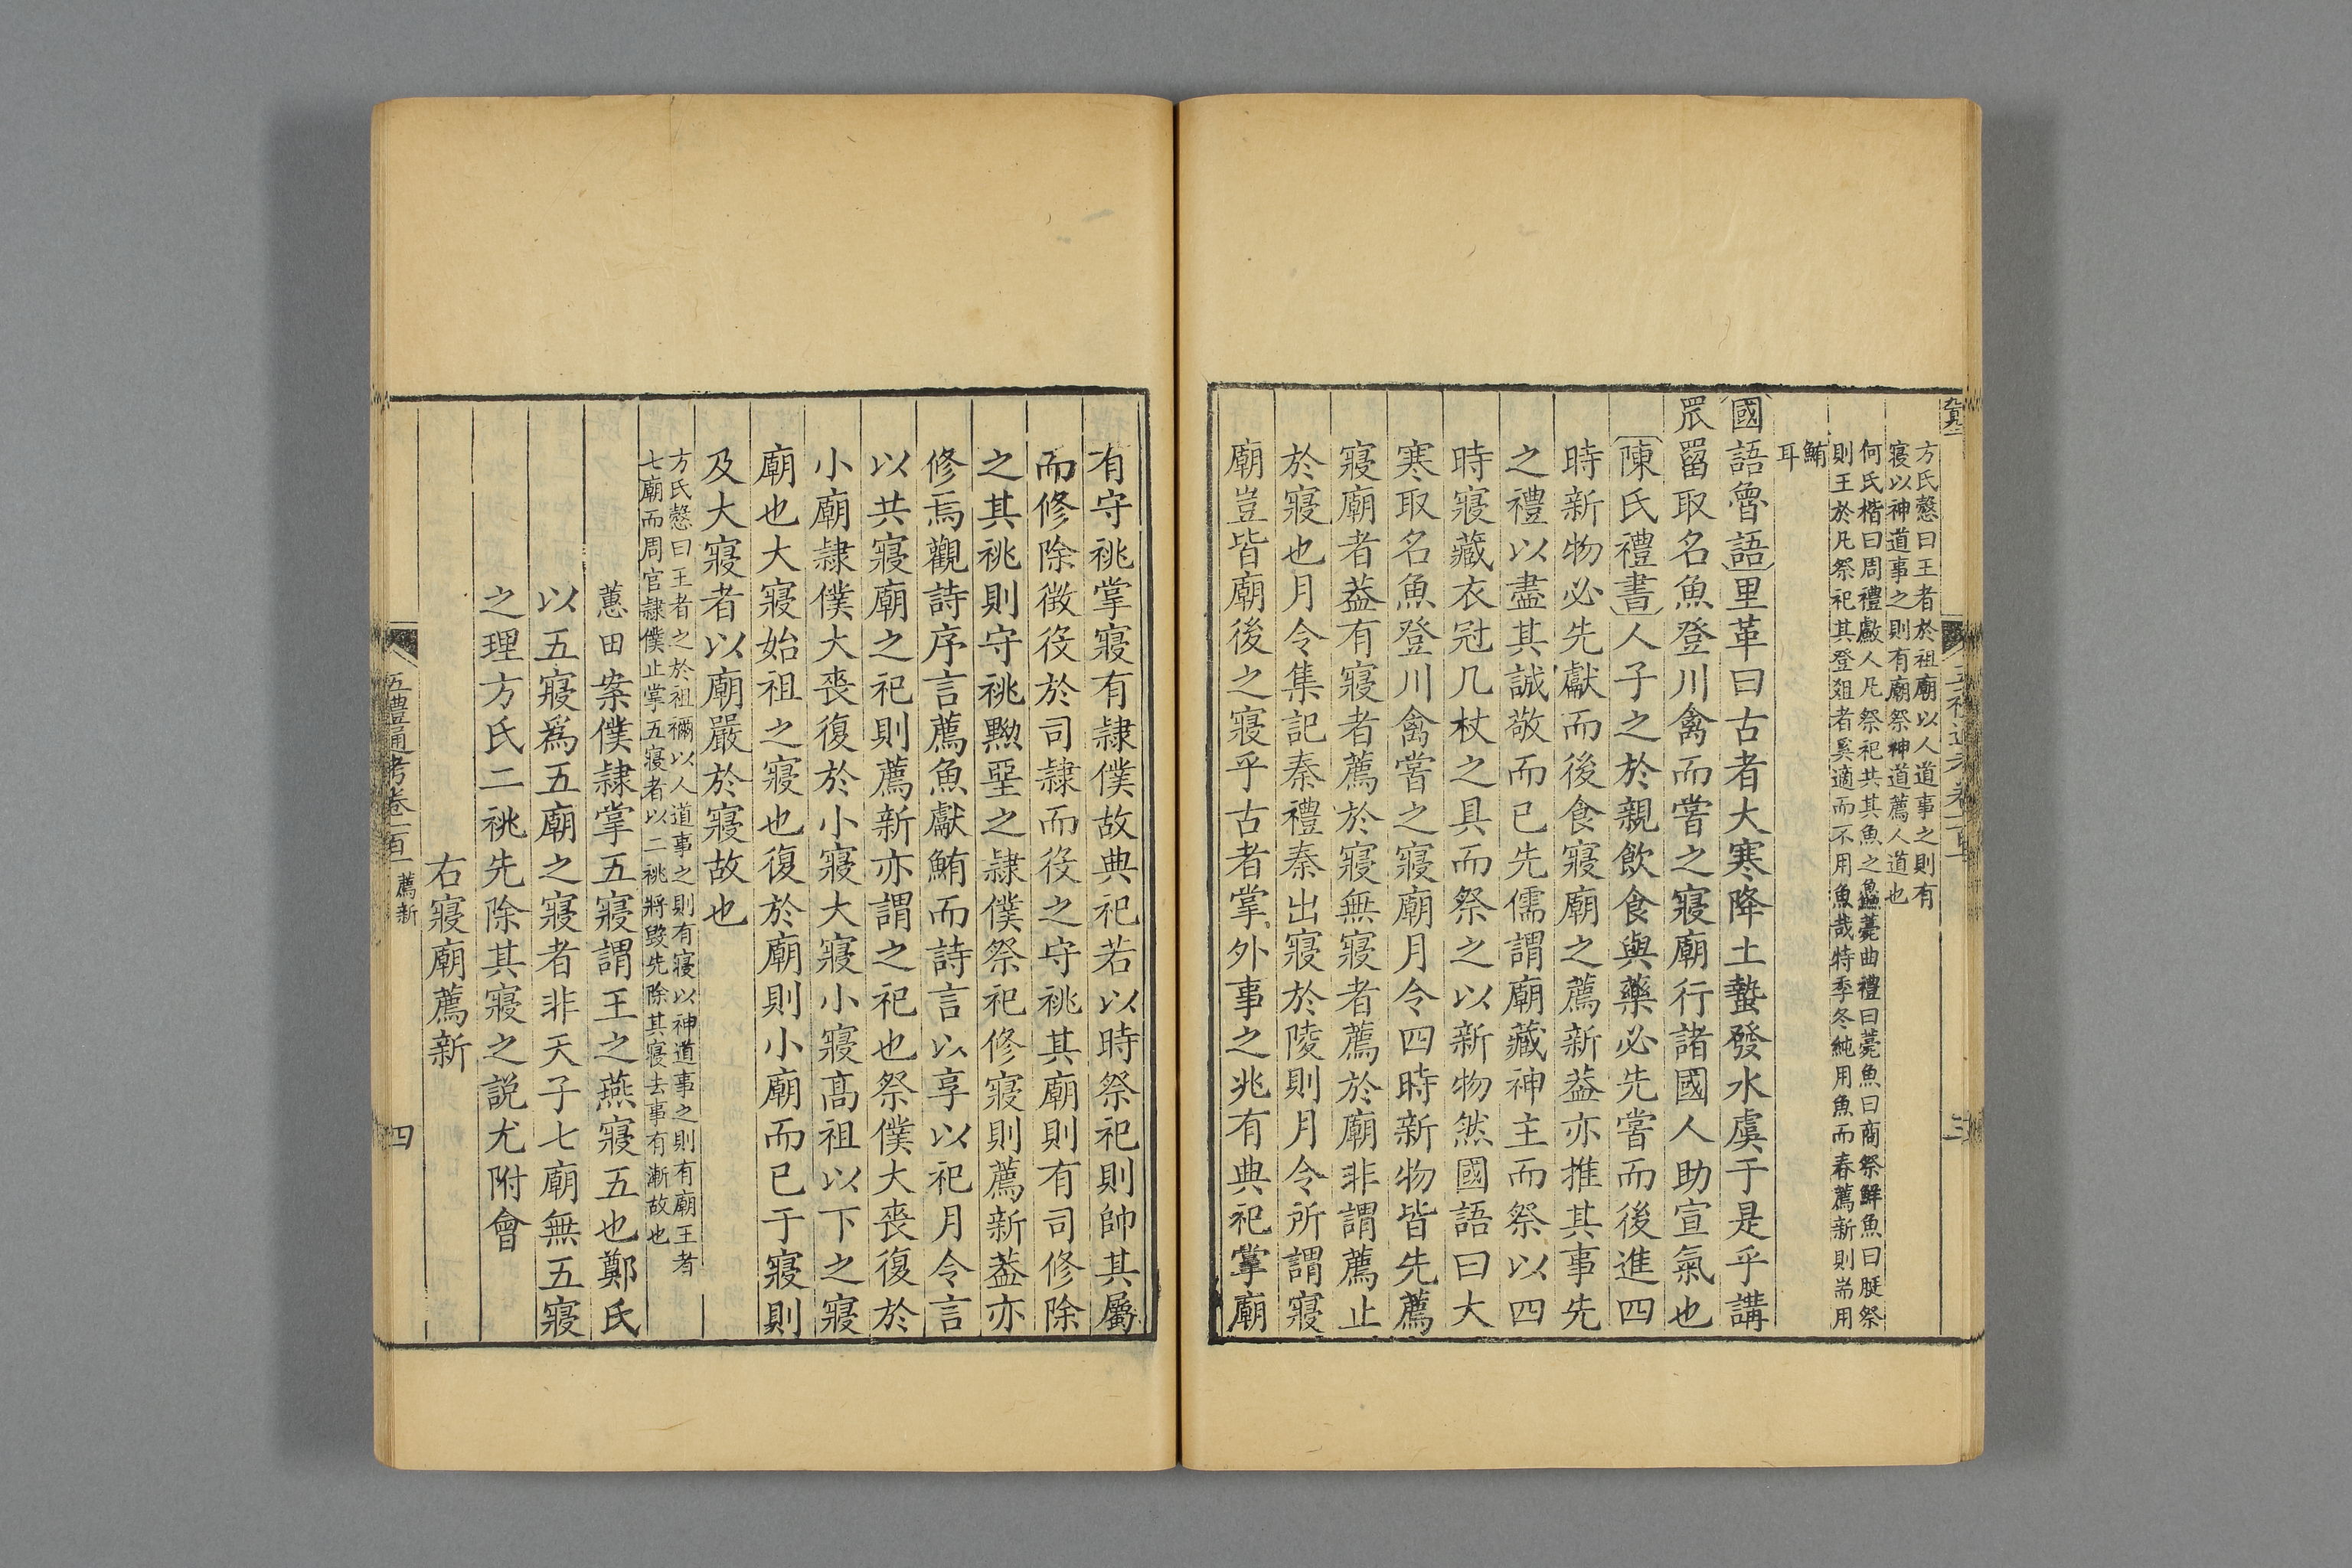 方氏慤曰王者於祖廟以人道事之則有
寢以神道事之則有廟祭神道薦人道也
何氏楷曰周禮䱷人凡祭祀共其魚之鱻薧曲禮曰薧魚曰商祭鮮魚曰脡祭
則王於凡祭祀其登俎者奚適而不用魚哉特季冬純用魚而春薦新則耑用
鮪
耳
國語魯語里革曰古者大寒降土蟄發水虞于是乎講
罛罶取名魚登川禽而嘗之寢廟行諸國人助宣氣也
陳氏禮書人子之於親飲食與藥必先嘗而後進四
時新物必先獻而後食寢廟之薦新葢亦推其事先
之禮以盡其誠敬而已先儒謂廟藏神主而祭以四
時寢藏衣冠几杖之具而祭之以新物然國語曰大
寒取名魚登川禽嘗之寢廟月令四時新物皆先薦
寢廟者葢有寢者薦於寢無寢者薦於廟非謂薦止
於寢也月令集記秦禮秦出寢於陵則月令所謂寢
廟豈皆廟後之寢乎古者掌外事之兆有典祀掌廟
三
有守祧掌寢有隷僕故典祀若以時祭祀則帥其屬
而修除徵役於司隷而役之守祧其廟則有司修除
之其祧則守祧黝堊之隷僕祭祀修寢則薦新葢亦
修焉觀詩序言薦魚獻鮪而詩言以享以祀月令言
以共寢廟之祀則薦新亦謂之祀也祭僕大喪復於
小廟隷僕大喪復於小寢大寢小寢髙祖以下之寢
廟也大寢始祖之寢也復於廟則小廟而已于寢則
及大寢者以廟嚴於寢故也
方氏慤曰王者之於祖禰以人道事之則有寢以神道事之則有廟王者
七廟而周官隷僕止掌五寢者以二祧將毀先除其寢去事有漸故也
蕙田案僕隷掌五寢謂王之燕寢五也鄭氏
以五寢爲五廟之寢者非天子七廟無五寢
之理方氏二祧先除其寢之説尤附會
右寢廟薦新
五禮通考卷一百 薦新
四